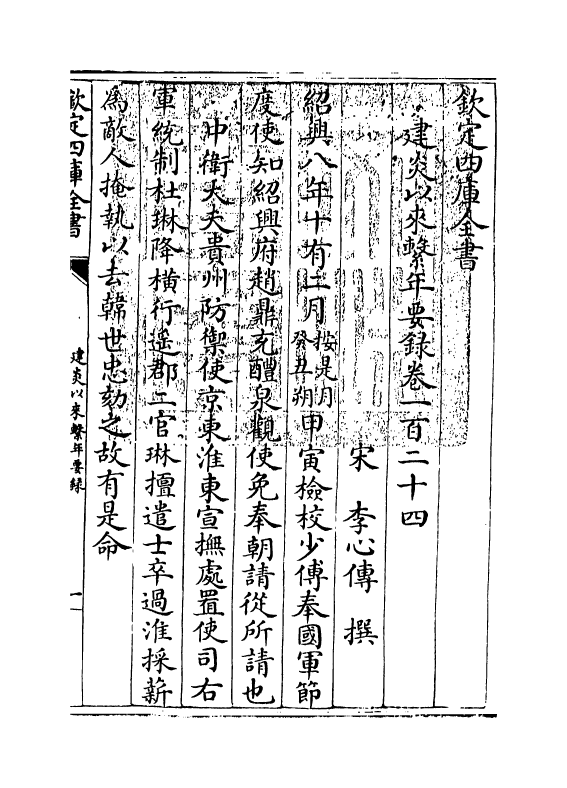 欽定四庫全書
建炎以來繫年要錄卷一百二十四
宋 李心傳 撰
紹興八年十有二月按是月癸丑朔甲寅檢校少傅奉國軍節
度使知紹興府趙鼎充醴泉觀使免奉朝請從所請也
中衛大夫貴州防禦使京東淮東宣撫處置使司右
軍統制杜琳降橫行遥郡二官琳擅遣士卒過淮採薪
為敵人掩執以去韓世忠劾之故有是命
欽定四庫全書
建炎以來繫年要錄
一